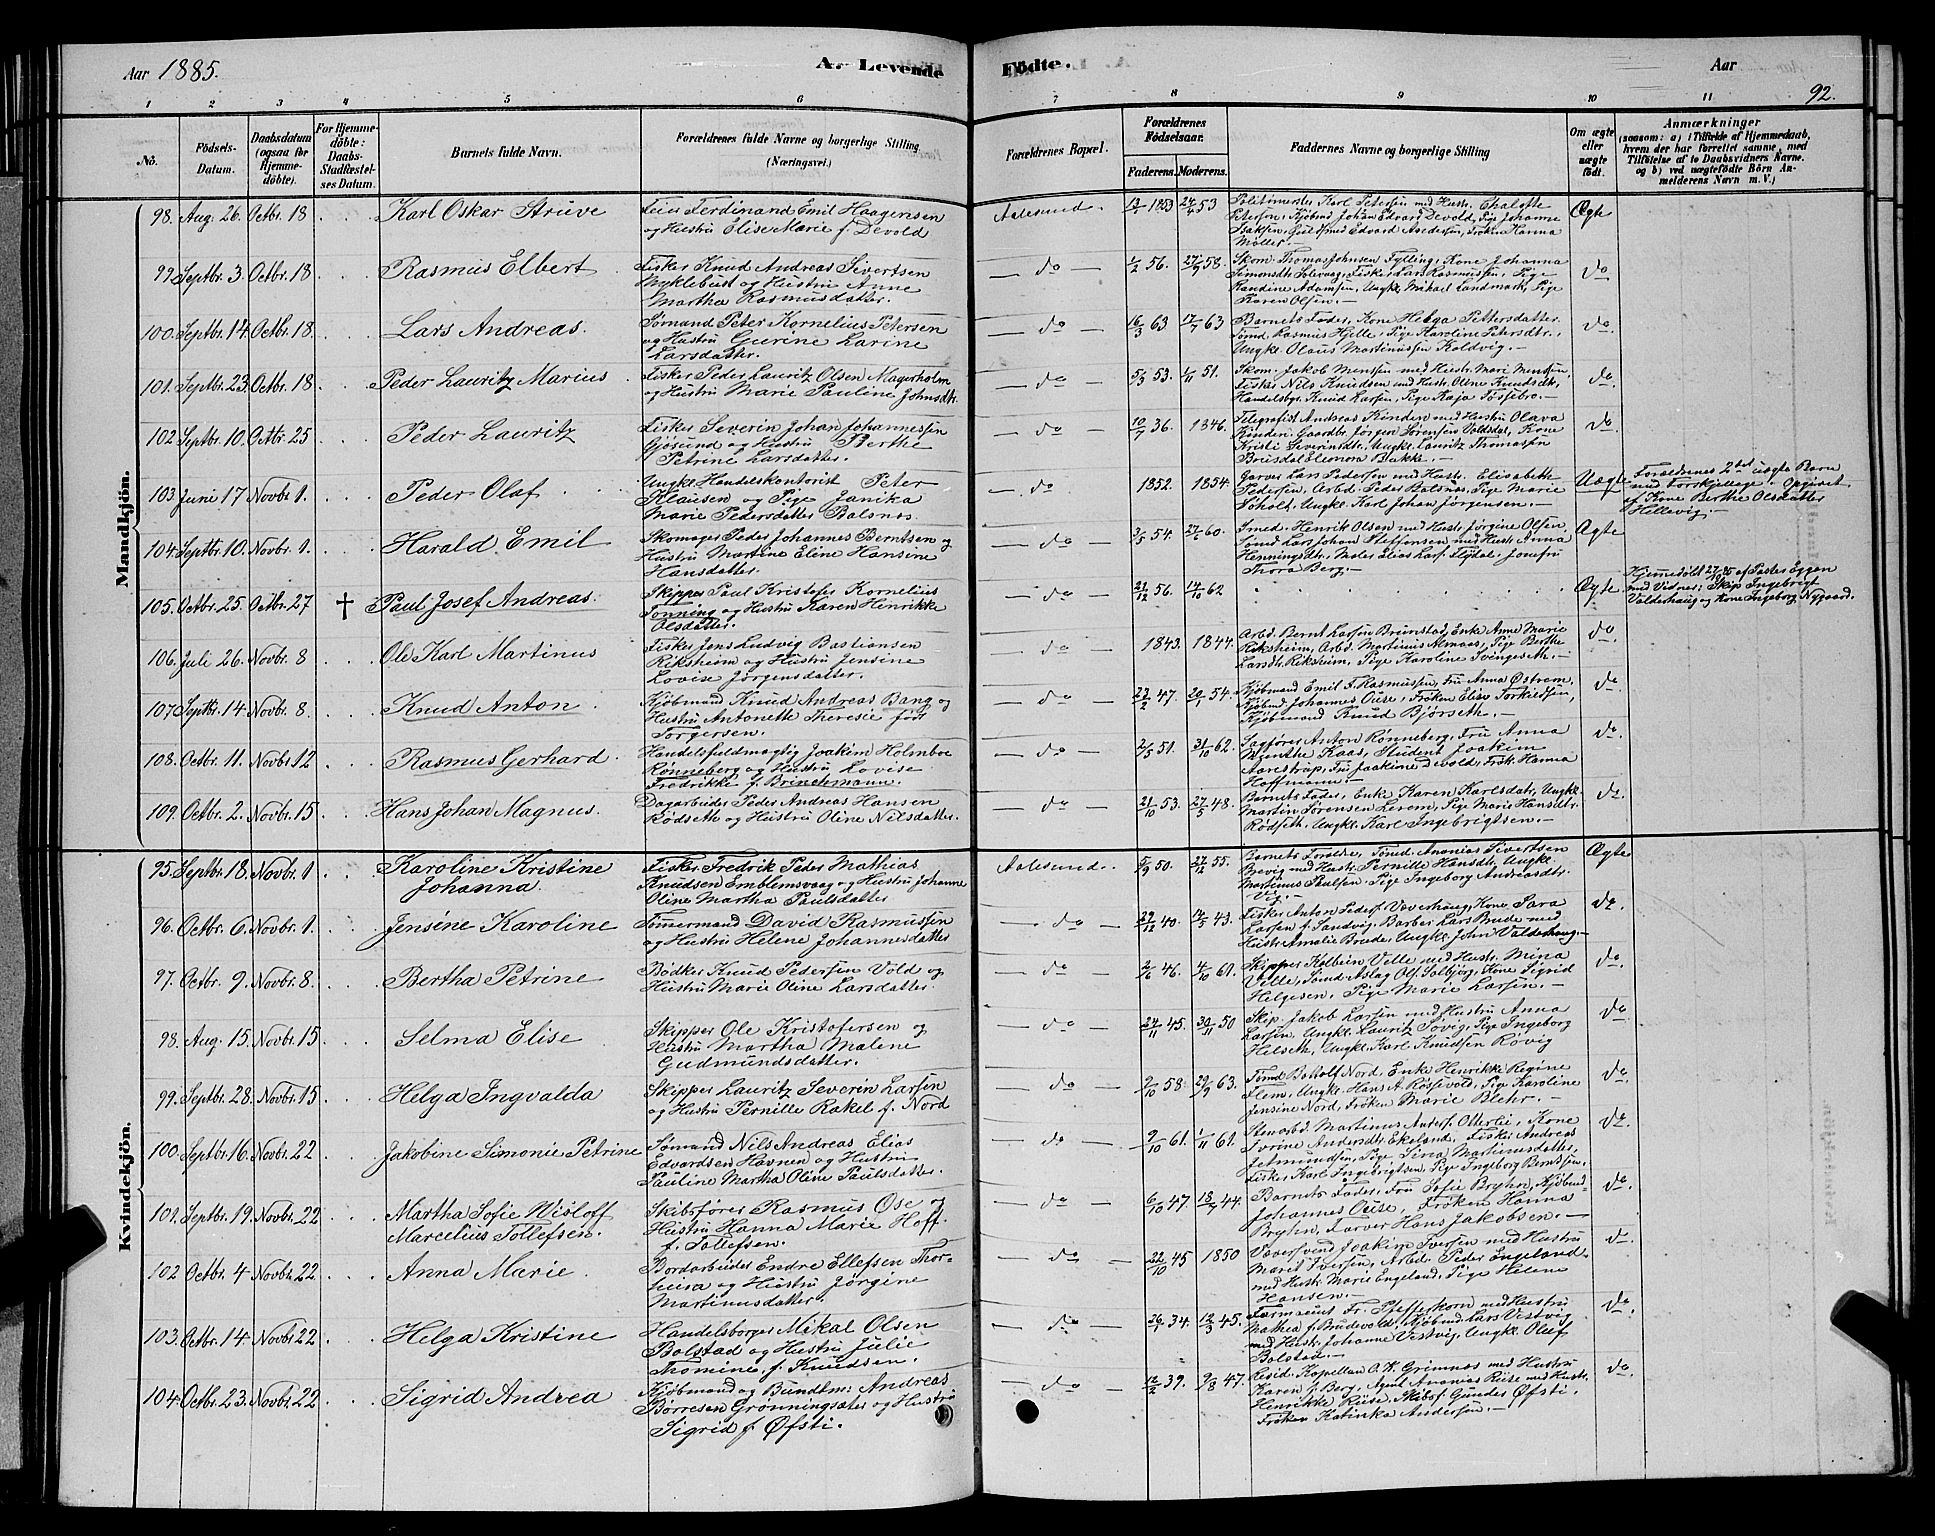 Aar 1885.
A. Levende
Födte.
Aar
92.
1 2 3 4 5 6 7 8 9 10 11
No.
Födsels-Datum.
Daabsdatum (ogsaa for Hjemme-döbte).
For Hjemme-döbte: Daabs-Stadfæstel-ses Datum.
Barnets fulde Navn.
Forældrenes fulde Navne og borgerlige Stilling (Næringsvei.)
Forældrenes Bopæl.
Forældrenes Födselsaar.
Faderens. Moderens.
Faddernes Navne og borgerlige Stilling
Om ægte eller uægte födt.
Anmærkninger
(saasom: a) i Tilfælde af Hjemmedaab,
hvem der har forrettet samme, med
Tilföielse af to Daabsvidners Navne.
og b) ved uægtefödte Börn An-
melderens Navn m.V.)
Mandkjön.
98. Aug. 26. Octbr. 18 Karl Oskar Struve
Feier Ferdinand Emil Haagensen
og Hustru Elise Marie f. Devold
Aalesund. 1853 53
Politimester Karl Petersen med Hustr. Chalotte
Petersen, Kjöbmd Johan Edvard Devold, Pige Johanne
Isaksen, Guldsmed Edvard Andersen, Fröken Hanna
Möller.
Ægte
99 Septbr. 3. Octbr. 18. Rasmus Elbert
Fisker Knud Andreas Sivertsen
Myklebust og Hustru Anne
Martha Rasmusdatter.
do 1/2 56. 27/9 58.
Skom. Thomas Johnsen Fylling, Kone Johanna
Simonsdtr. Solevaag, Fisker Lars Rasmussen, Pige
Randine Adamsen, Ungkl. Mikael Landmark, Pige
Karen Olsen.
do
100. Septbr. 14. Octbr. 18. Lars Andreas.
Sömand Peter Kornelius Petersen
og Hustru Gurine Larine
Larsdatter.
do 16/3 63 17/7 63
Barnets Fader, Kone Helga Pettersdatter.
Sömd Rasmus Hjelle, Pige Karoline Petersdtr.,
Ungkl. Olaus Martinussen Koldvig.
do
101. Septbr. 23. Octbr. 18 Peder Lauritz Marius
Fisker Peder Lauritz Olsen Magerholm
og Hustru Marie Pauline Johnsdtr.
do 5/3 53. 1/11 51.
Skom. Jakob Monssen med Hustr. Mari Monssen,
Fisker Nils Knudsen med Hustr. Oline Knudsdtr.
Handelsbgr. Knud Larsen, Pige Kaja Fossebro.
do
102 Septbr. 10. Octbr. 25 Peder Lauritz
Fisker Severin Johan Johannessen
Gjösund og Hustru Berthe
Petrine Larsdatter.
do 10/7 36. 1846.
Telegrafist Andreas Kinden med Hustru Olava
Kinden, Gaardbr. Jörgen Sörensen Valdsdal, Kone
Kristi Severinsdtr., Ungkl. Lauritz Thomassen
Brusdal, Eleonora Bakke.
do
103 Juni 17 Novbr. 1. Peder Olaf
Ungkl. Handelskontorist Peter
Klausen og Pige Janika
Marie Pedersdatter Balsnes
do 1852. 1854.
Garver Lars Pedersen med Hustr. Elisabeth
Pedersen, Arbd. Peder Balsnes, Pige Marie
Soholt, Ungkl. Karl Johan Jörgensen.
Uægte
Forældrenes 2det uægte Barn
med Forskjellige. Opgivet
af Kone Berthe Olsdatter
Hellevig.
104. Septbr. 10. Novbr. 1. Harald Emil
Skomager Peder Johannes Berntsen og
Hustru Martine Eline Hansine
Hansdatter.
do 3/5 54. 27/5 60.
Smed Henrik Olsen med Hustr. Jörgine Olsen,
Sömd Lars Johan Steffensen med Hustr. Anna
Henningsdtr., Maler Elias Lars. Flydal, Jomfru
Thora Berg.
Ægte
105. Octbr. 25. Octbr. 27 ✝ Paul Josef Andreas.
Skipper Paul Kristofer Kornelius
Tonning og Hustru Karen Henrikke
Olsdatter.
do 23/12 56. 14/10 62
Ægte
Hjemmedöbt 27/10 85 af Pastor Eggen
med Vidner: Skip. Ingebrigt
Valderhaug og Kone Ingeborg Nygaard.
106. Juli 26. Novbr. 8 Ole Karl Martinus
Fisker Jens Ludvig Bastiansen
Riksheim og Hustru Jensine
Lovise Jörgensdatter.
do 1843. 1844.
Arbd. Bernt Larsen Brunstad, Enke Anne Marie
Riksheim, Arbd. Martinus Almaas, Pige Berthe
Larsdtr. Riksheim, Pige Karoline Svingeseth.
do
107. Septbr. 14. Novbr. 8. Knud Anton
Kjöbmand Knud Andreas Bang og
Hustru Antonette Theresie född
Torgersen.
do 23/2 47. 20/1 54.
Kjöbmand Emil F. Rasmussen, Fru Anna Östrem,
Kjöbmd Johannes Ouse, Fröken Elise Torkildsen,
Kjöbmand Knud Bjørseth.
do
108. Octbr. 11. Novbr. 12 Rasmus Gerhard
Handelsfuldmægtig Joakim Holmboe
Rönneberg og Hustru Lovise
Fredrikke f. Brinchmann.
do 2/5 51. 31/10 62.
Sagförer Anton Rönneberg, Fru Anna
Kaas, Student Joakim
Aarestrup, Fru Joakine Devold, Frök. Hanna
Hoffmann.
do
109. Octbr. 2. Novbr. 15 Hans Johan Magnus.
Dagarbeider Peder Andreas Hansen
Rödseth og Hustru Oline Nilsdatter.
do 21/10 53. 27/5 48.
Barnets Fader, Enke Karen Karlsdatr., Ungkl.
Martin Sörensen Lerem, Pige Marie Hansdtr.
Rödseth, Ungkl. Karl Ingebrigtsen.
do
Kvindekjön.
95. Septbr. 18. Novbr. 1 Karoline Kristine
Johanna
Fisker Fredrik Peder Mathias
Knudsen Emblemsvaag og Hustru Johanne
Oline Martha Paulsdatter
Aalesund. 5/9 50. 27/12 55.
Barnets Forældre, Tömd. Ananias Sivertsen
Brevig med Hustr. Pernille Hansdtr., Ungkl.
Martinus Paulsen, Pige Ingeborg Andreasdtr.
Vig.
Ægte
96. Octbr. 6. Novbr. 1. Jensine Karoline
Tömmermand David Rasmussen
og Hustru Helene Johannesdatter
do 29/12 40. 14/5 43.
Fisker Anton Peders. Vaverhaug, Kone Sara
Larsen f. Sandvig, Barber Lars Brude med
Hustr. Amalie Brude, Ungkl. John Valderhaug.
do.
97. Octbr. 9. Novbr. 8. Bertha Petrine
Bödker Knud Pedersen Vold og
Hustru Marie Oline Larsdatter.
do 2/6 46. 4/10 61.
Skipper Kolbein Velle med Hustr. Mina
Velle, Sömd Aslag Ols. Solbjörg, Kone Sigrid
Helgesen, Pige Marie Larsen.
do
98. Aug. 15. Novbr. 15 Selma Elise
Skipper Ole Kristofersen og
Hustru Martha Malene
Gudmundsdatter.
do 24/11 45. 30/11 50
Skip. Jakob Larsen med Hustru Anna
Larsen, Ungkl. Lauritz Sövig, Pige Ingeborg
Helseth, Ungkl. Karl Knudsen Rövig
do
99. Septbr. 28. Novbr. 15 Helga Ingvalda
Skipper Lauritz Severin Larsen
og Hustru Pernille Rakel f. Nord
do 9/10 58. 29/9 63.
Tömd Bottolf Nord, Enke Henrikke Regine
Flem, Ungkl. Hans A. Rössevold, Pige Karoline
Jensine Nord, Fröken Marie Blehr.
do
100. Septbr. 16. Novbr. 22 Jakobine Simonie Petrine
Sömand Nils Andreas Elias
Edvardsen Havnen og Hustru
Pauline Martha Oline Paulsdatter.
do 9/10 61. 1/11 61.
Stenarbd. Martinus Anders. Otterlei, Kone
Torine Andersdtr. Ekeland, Fisker Andreas
Jetmundsen, Pige Sina Martinusdatter,
Fisker Karl Ingebrigtsen, Pige Ingeborg Berntsen.
do.
101. Septbr. 19. Novbr. 22 Martha Sofie Wisloff
Marcelius Tollefsen.
Skibsförer Rasmus Ose og
Hustru Hanna Marie Hoff
f. Tollefsen.
do 6/10 47. 18/7 44.
Barnets Fader, Fru Sofie Bryhn, Kjöbmd
Johannes Ouise, Fröken Hanna
Bryhn, Farver Hans Jakobsen.
do.
102 Octbr. 4 Novbr. 22 Anna Marie
Bordarbeider Endre Ellefsen Thor-
og Hustru Jörgine
Martinusdatter.
do 22/10 45 1850
Væversvend Joakim Iversen med Hustru
Marit Iversen, Arbdr. Peder Engeland
med Hustr. Marie Engeland, Pige Helene
Hansen.
do
103. Octbr. 14. Novbr. 22 Helga Kristine
Handelsborger Mikal Olsen
Bolstad og Hustru Julie
Thomine f. Knudsen.
do 26/1 34. 12/3 45.
Farmaceut Fr. Pfefferkorn med Hustru
Mathea f. Brudevold, Kjöbmd Lars Vestvig
med Hustr. Johanne Vestvig, Ungkl. Oluf
Bolstad.
do
104. Octbr. 23. Novbr. 22 Sigrid Andrea
Kjöbmand og Bundtm: Andreas
Börresen Grönningsæter og Hustru
Sigrid f. Øfsti.
do 12/2 39. 9/8 47.
Resid. Kapellan O.K. Grimnes med Hustru
Karen f. Berg, Agent Ananias Riise med Hustr.
Henrikke Riise, Skibsf. Gunder Øfsti,
Fröken Katinka Andersen.
do